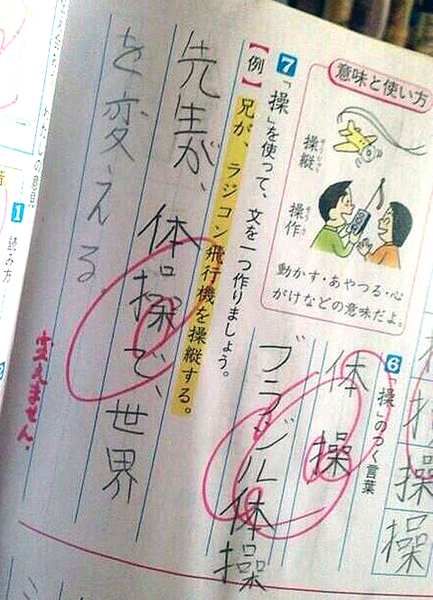 意味と使い方
操縦
そうじゅう
操作
そうさ
動かす・あやつる・心
がけなどの意味だよ。
7 「操」を使って、文を一つ作りましょう。
【例】兄が、ラジコン飛行機を操縦する。
先生が、体操で、世界
を変える
変えません。
6 「操」のつく言葉
体操
ブラジル体操
操
操
の意見
1 読み方